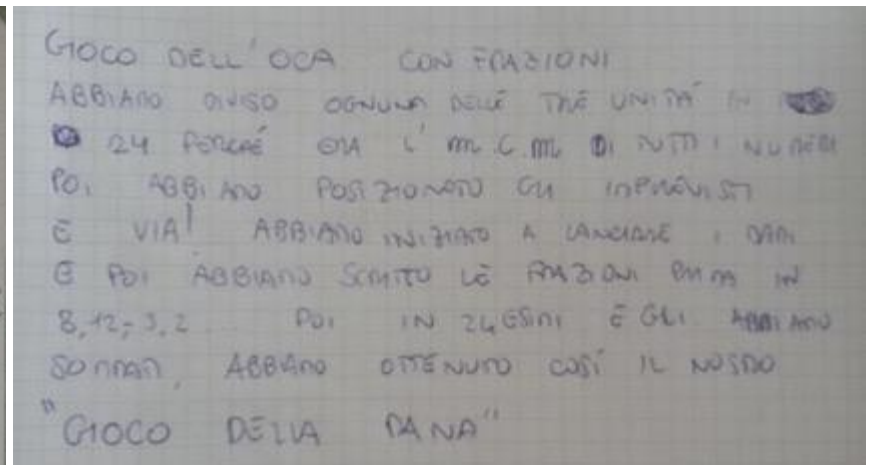 GIOCO DELL'OCA CON FRAZIONI
ABBIAMO DIVISO OGNUNA DELLE TRE UNITÁ IN
24 PERCHÉ ERA L' m.c.m DI TUTTI I NUMERI
POI ABBIAMO POSIZIONATO GLI IMPREVISTI
E VIA! ABBIAMO INIZIATO A LANCIARE I DADI
E POI ABBIAMO SCRITTO LE FRAZIONI PRIMA IN
8, 12, 3, 2... POI IN 24ESIMI E GLI ABBIAMO
SOMMATI, ABBIAMO OTTENUTO COSÍ IL NOSTRO
"GIOCO DELLA RANA"